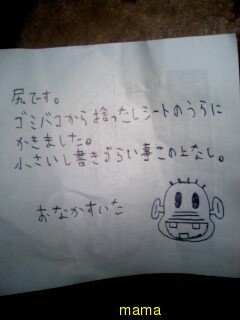 尻です。
ゴミバコから捨ったしシートのうらに
かきました。
小さいし書きづらい事この上なし。
おなかすいた
mama